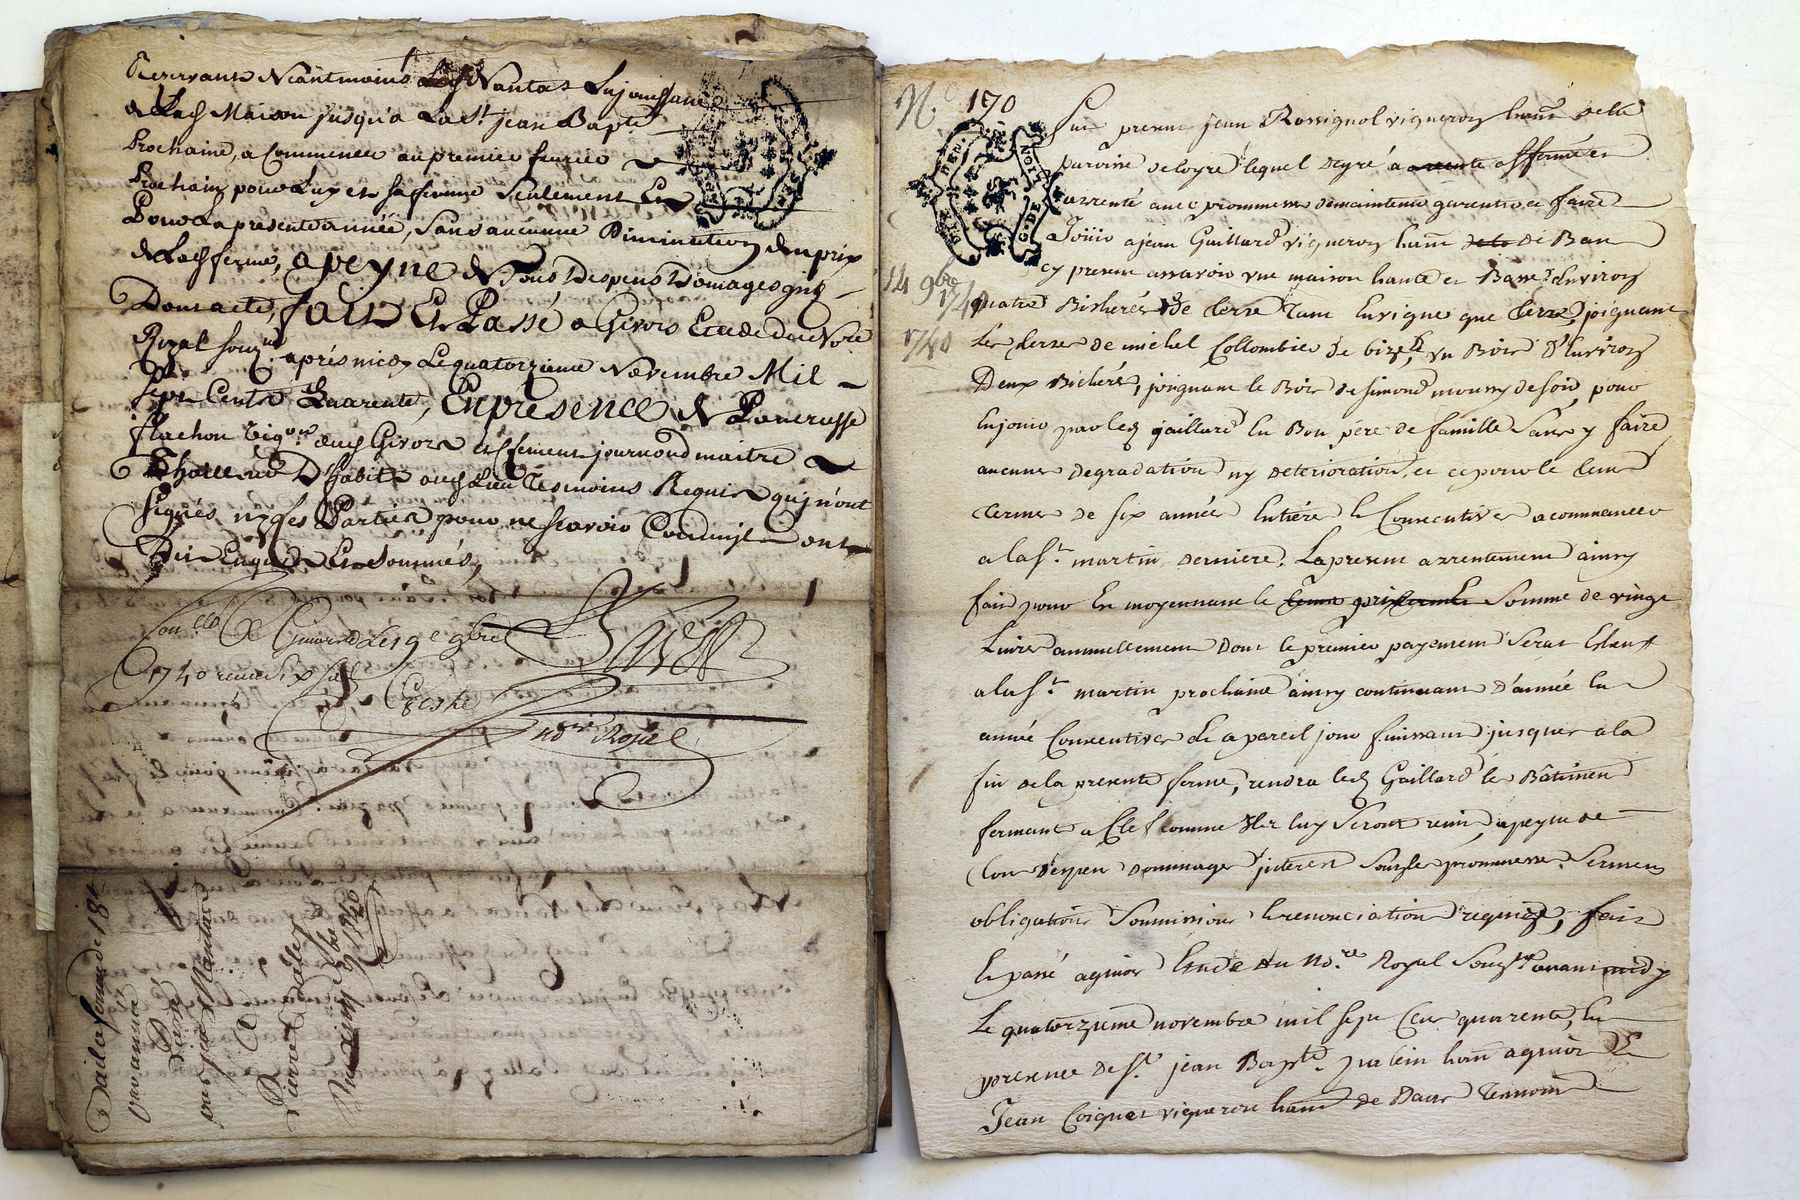 Reservants Neantmoins Led Nantas La jouissance
de Lad Maison jusqu'a La St jean Bapte
Prochaine, a Commencer au premier fevrier
Prochain pour Luy et sa femme Seulement Et
Pour La presente année, Sans aucunne Diminution du prix
de Lad ferme, a peyne de Tous Despens Domages
Dont acte, fait Et Passé a Givors Etude du No.re
Royal Souz.né apres midy Le quatorzieme Novembre Mil
Sept Cents Quarente, En presence de
flachon vig.on dud Givors et Clement journoud maitre
D'habits aud Lieu Tesmoins Requis qui n'ont
Signés, ny Les Parties pour ne Scavoir Comme ils ont
Dit Enquis Et Sommés,
Con.llé a Givors Le 19e 9bre
1740 receu Six sols
no.re Royal
Bail a ferme de 18lt
par année
Passé
par
A
Pierre
Du 14 9bre 1740
N.o 170
14 9bre
1740
1740
G. DE LYON
Fut present jean Rossignol vigneron habt. de la
parroisse de loyre lequel de gré a affermé et
arrenté avec promesse de maintenir garentir et faire
Jouir a jean Gaillard vigneron habt. de Ban
cy present assavoir une maison haute et Basse, d'Environ
quatre Bicherés de terre Tant En vigne que terre, joignant
Les terres de michel Collombier de bizet, un Bois D'Environ
Deux Bicherés, joignant le Bois de Simond de soir, pour
En jouir par led gaillard En Bon pere de famille Sans y faire
aucunes degradation ny deterioration, et ce pour le tems
terme de six année Entiere & Consecutives a commancer
a la St. martin derniere. La present arrentement ainsy
fait pour Et moyennant le Somme de vingt
Livres annuellement Dont le premier payement Serat Echeut
a la St. martin prochaine ainsy continuant d'année En
année Consecutives Et a pareil jour finissant jusques a la
fin de la presente ferme, rendra led Gaillard le Bâtiment
fermant a Clef comme Il luy Seront remis, a peyne de
tout d'epen dommage interest Sous les promesse, Sermen
obligation Soumission & renonciation requises, fait
& passé a givor Etude du No.re Royal Souz.né avant midy
Le quatorzieme novembre mil sept Cent quarente, En
presence de Sr. jean Bapte. habt. a givor Et
Jean Coignet vigneron habt. de Bans Temoins